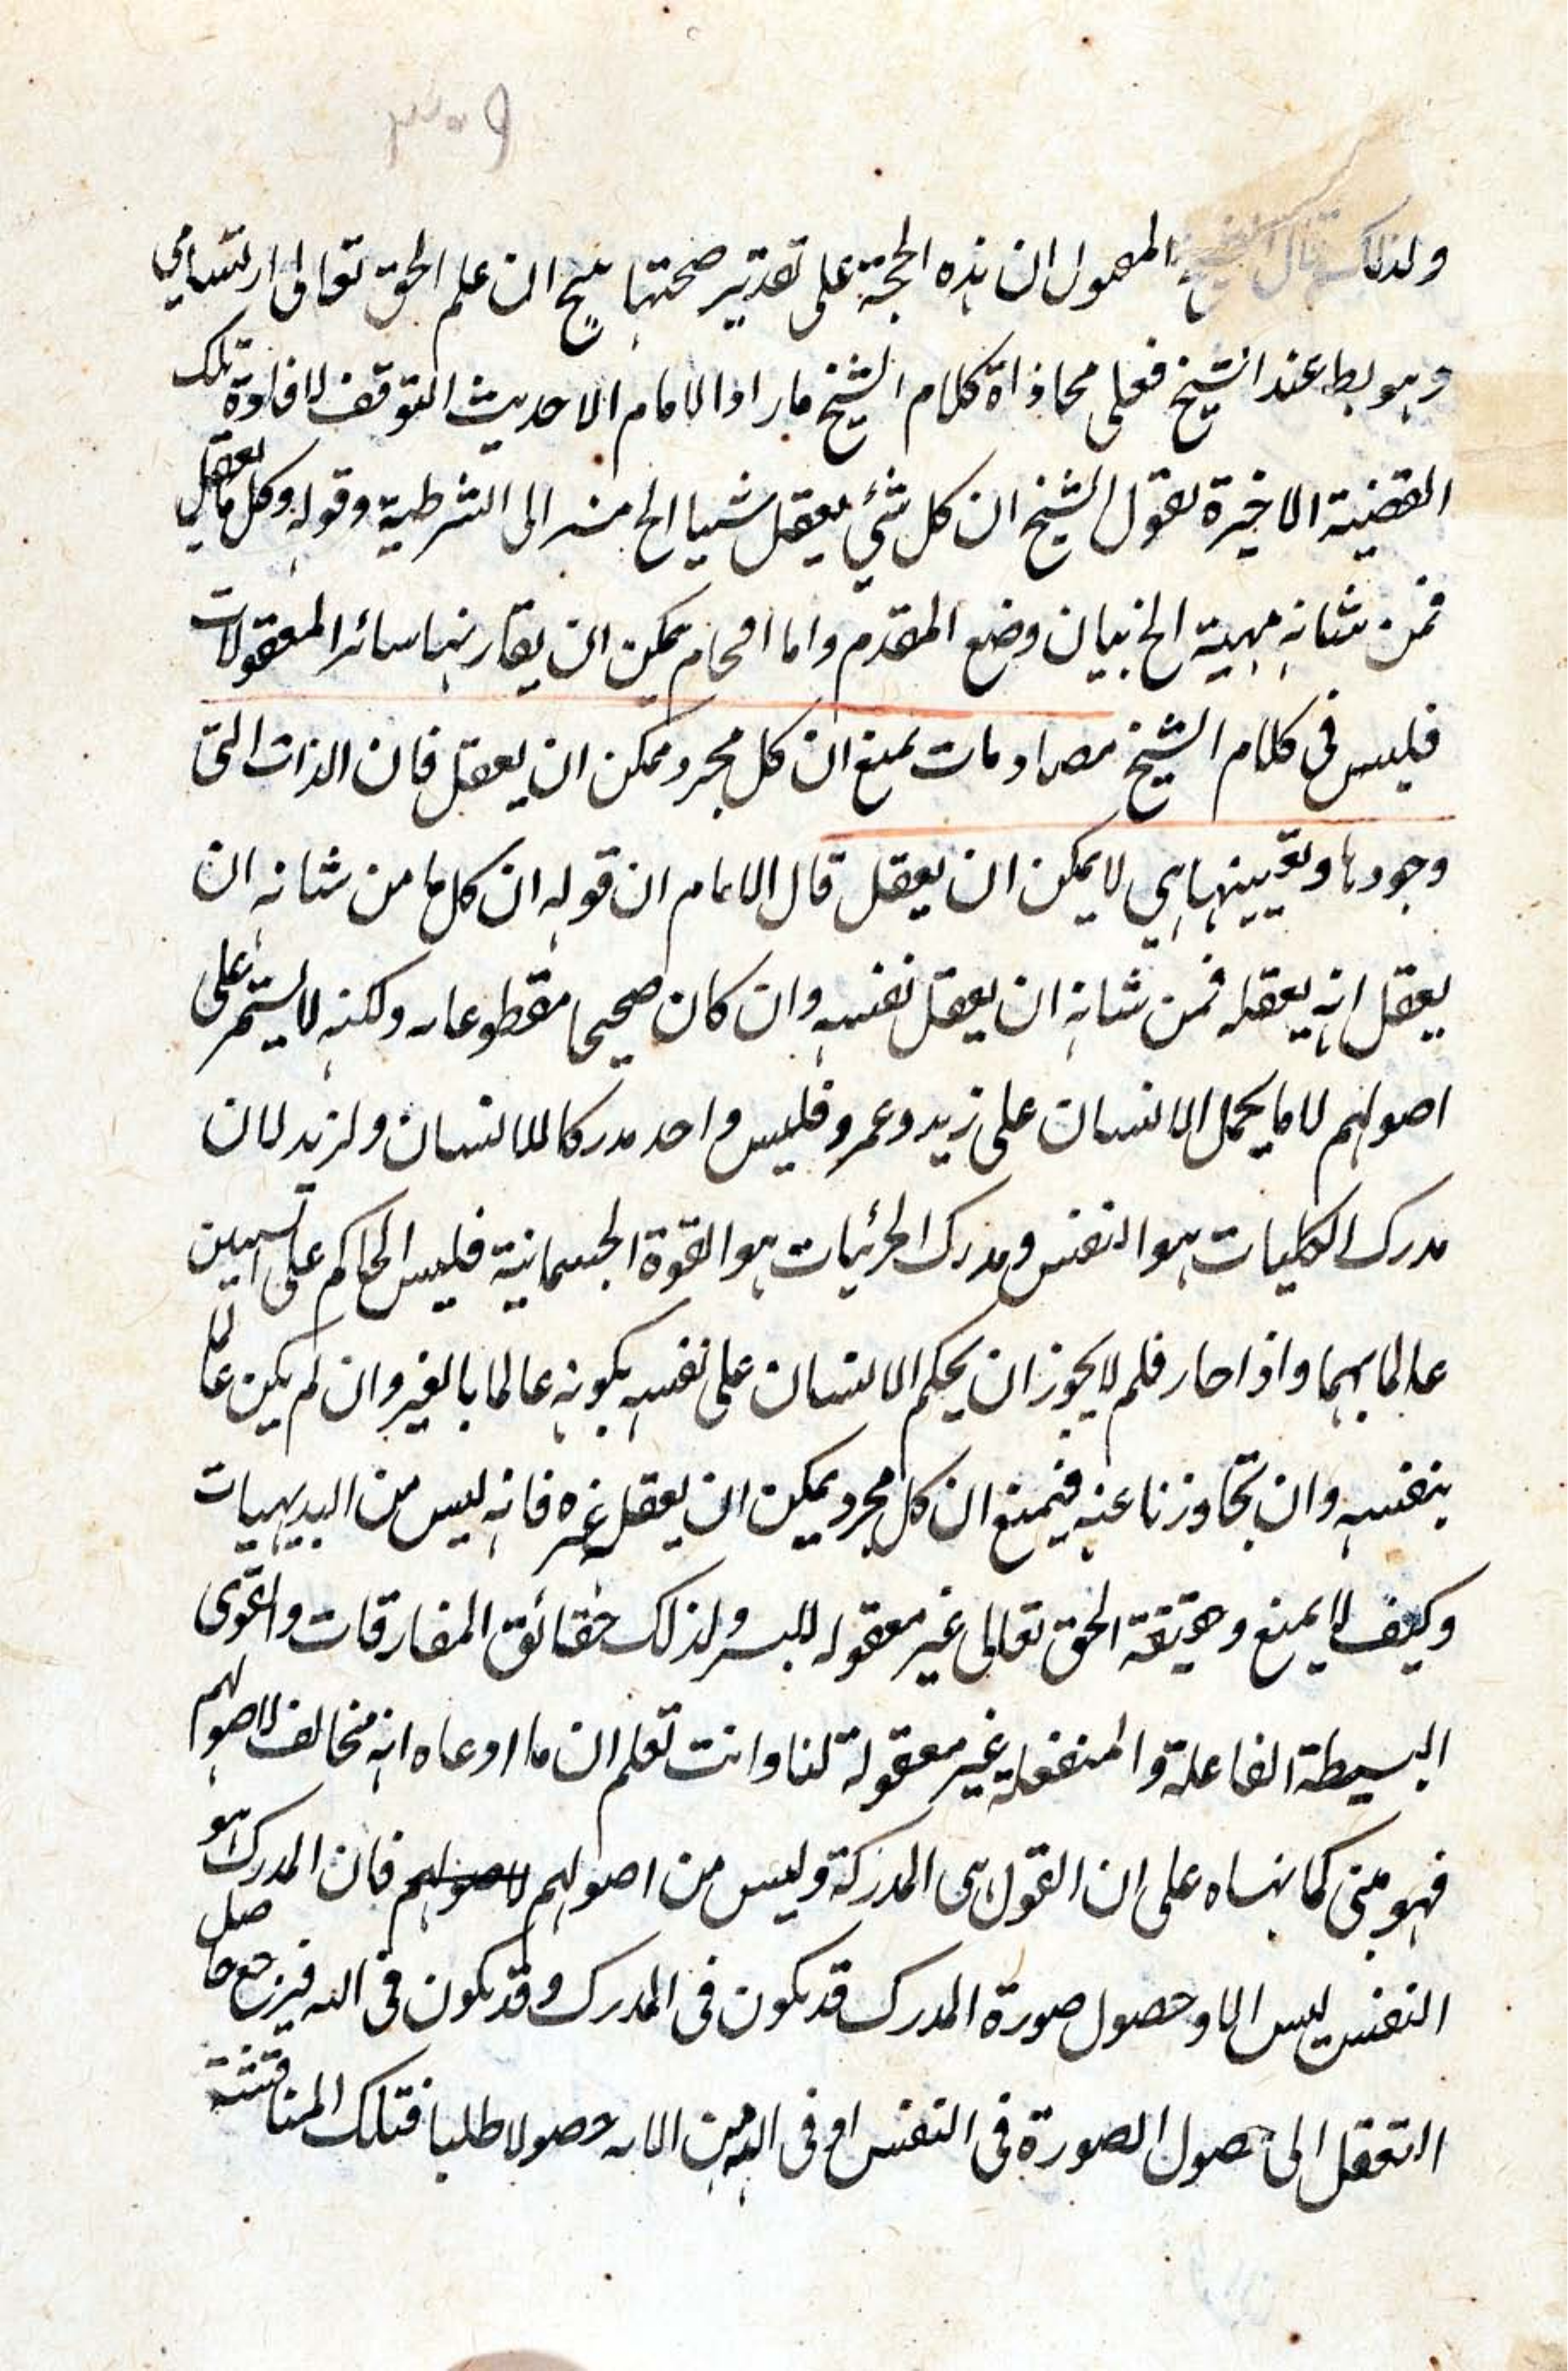 ٣٠٩
ولذلك قال المصول ان هذه الحجة على تقدير صحتها ينتج ان علم الحق تعالى ارتسامي
وهو بط عند الشيخ فعلى محاذاة كلام الشيخ ما راد الامام الا حديث التوقف لافادة تلك
القضية الاخيرة لقول الشيخ ان كل شئ يعقل شيا الخ منه الى الشرطية وقوله وكل ما يعقل
فمن شانه مهية الخ بيان وضع المقدم واما اقحام يمكن ان يقارنها سائر المعقولات
فليس فى كلام الشيخ مصادمات يمنع ان كل مجرد ممكن ان يعقل فان الذات التى
وجودها وتعيينها هي لا يمكن ان يعقل قال الامام ان قوله ان كل ما من شانه ان
يعقل انه يعقله فمن شانه ان يعقل نفسه وان كان صحيحا مقطوعا به ولكنه لا يستمر على
اصولهم لاما يحمل الانسان على زيد وعمرو فليس واحد مدركا للانسان ولزيد لان
مدرك الكليات هو النفس ومدرك الجزئيات هو القوة الجسمانية فليس الحاكم على الشيئين
عالما بهما واذا جاز فلم لا يجوز ان يحكم الانسان على نفسه بكونه عالما بالغير وان لم يكن عالما
بنفسه وان تجاوزنا عنه فيمنع ان كل مجرد يمكن ان يعقل غيره فانه ليس من البديهيات
وكيف لا يمنع وحقيقة الحق تعالى غير معقوله للبشر ولذلك حقائق المفارقات والقوى
البسيطة الفاعلة والمنفعلة غير معقولة لنا وانت تعلم ان ما ادعاه انه مخالف لاصولهم
فهو مبنى كما نبهناه على ان القول هى المدركة وليس من اصولهم لاصولهم فان المدرك هو
النفس ليس الا وحصول صورة المدرك قد يكون فى المدرك وقد يكون فى اله فيرجع حاصل
التعقل الى حصول الصورة فى النفس او فى الذهن الا به حصولا طلبا فتلك المناقشة